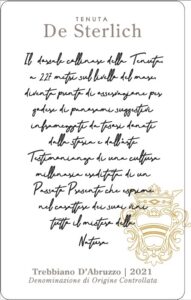 TENUTA
De Sterlich
Il dorsale collinare della Tenuta,
a 227 metri sul livello del mare,
diventa punto di osservazione per
godere di panorami suggestivi
inframezzati da tesori donati
dalla storia e dall'arte
Testimonianza di una cultura
millenaria ereditata di un
Passato Presente che esprime
nel carattere dei suoi vini
tutto il mistero della
Natura.
Trebbiano D'Abruzzo | 2021
Denominazione di Origine Controllata